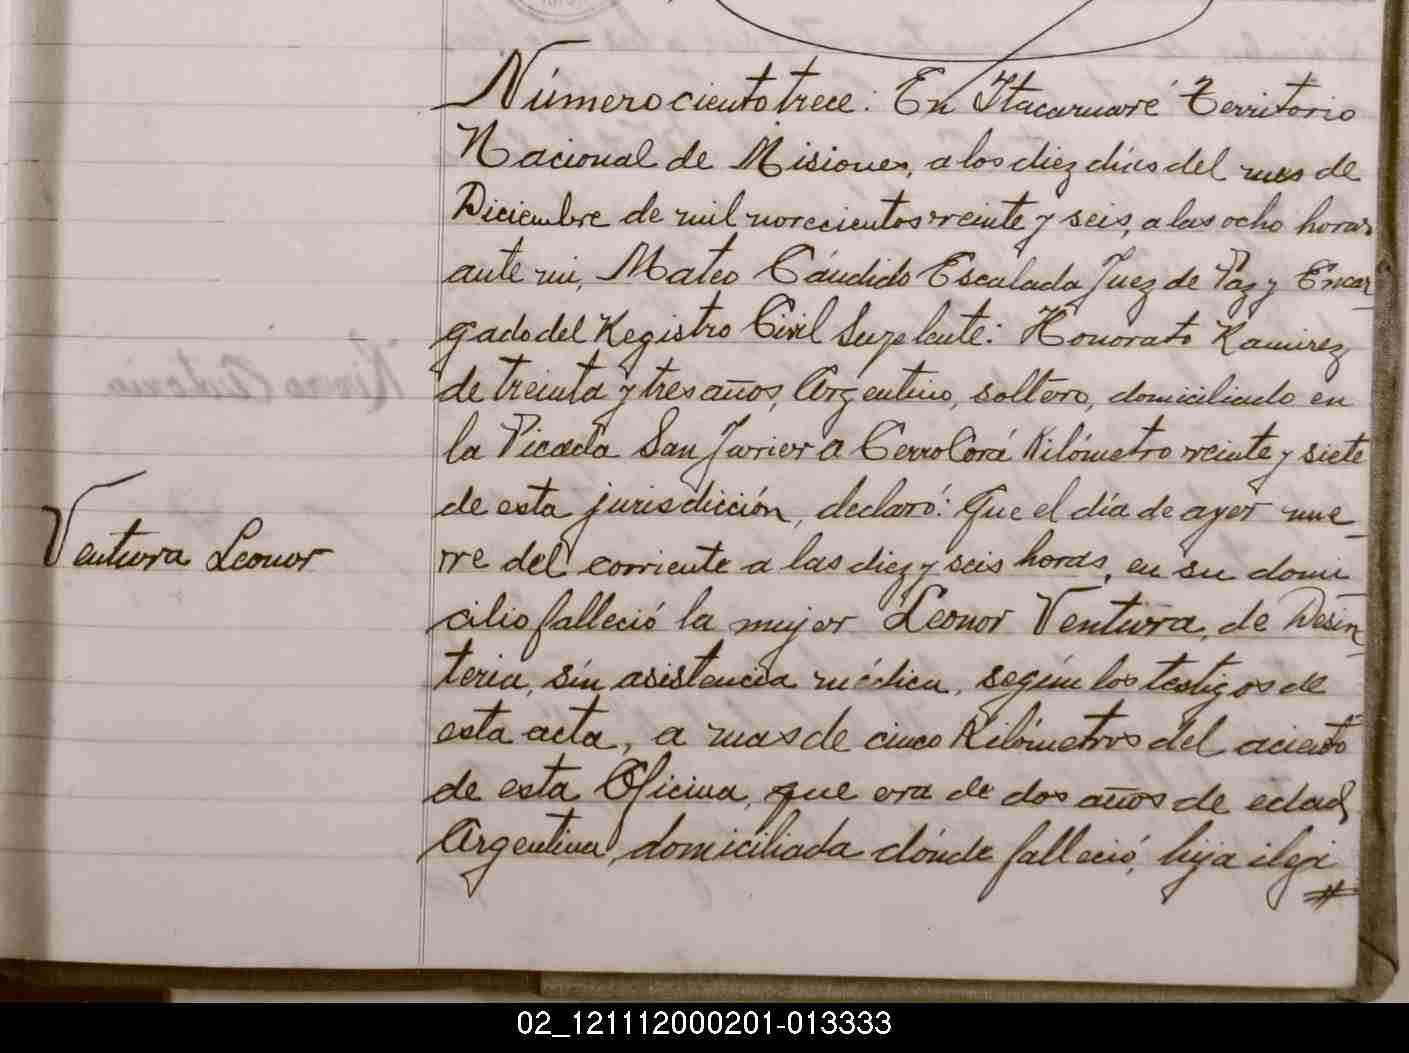 Número ciento trece: En Itacaruaré Territorio
Nacional de Misiones, a los diez días del mes de
Diciembre de mil novecientos veinte y seis, a las ocho horas
ante mi, Mateo Cándido Escalada Juez de Paz y Encar
gado del Registro Civil Suplente: Honorato Ramirez
de treinta y tres años, Argentino, soltero, domiciliado en
la Picada San Javier a Cerro Corá Kilómetro veinte y siete
de esta jurisdicción, declaró: Que el día de ayer nue
ve del corriente a las diez y seis horas, en su domi
Ventura Leonor
cilio falleció la mujer Leonor Ventura, de Desin
teria, sin asistencia médica, según los testigos de
esta acta, a mas de cinco Kilómetros del aciento
de esta Oficina, que era de dos años de edad,
Argentina, domiciliada dónde falleció, hija ilegi
02_121112000201-013333